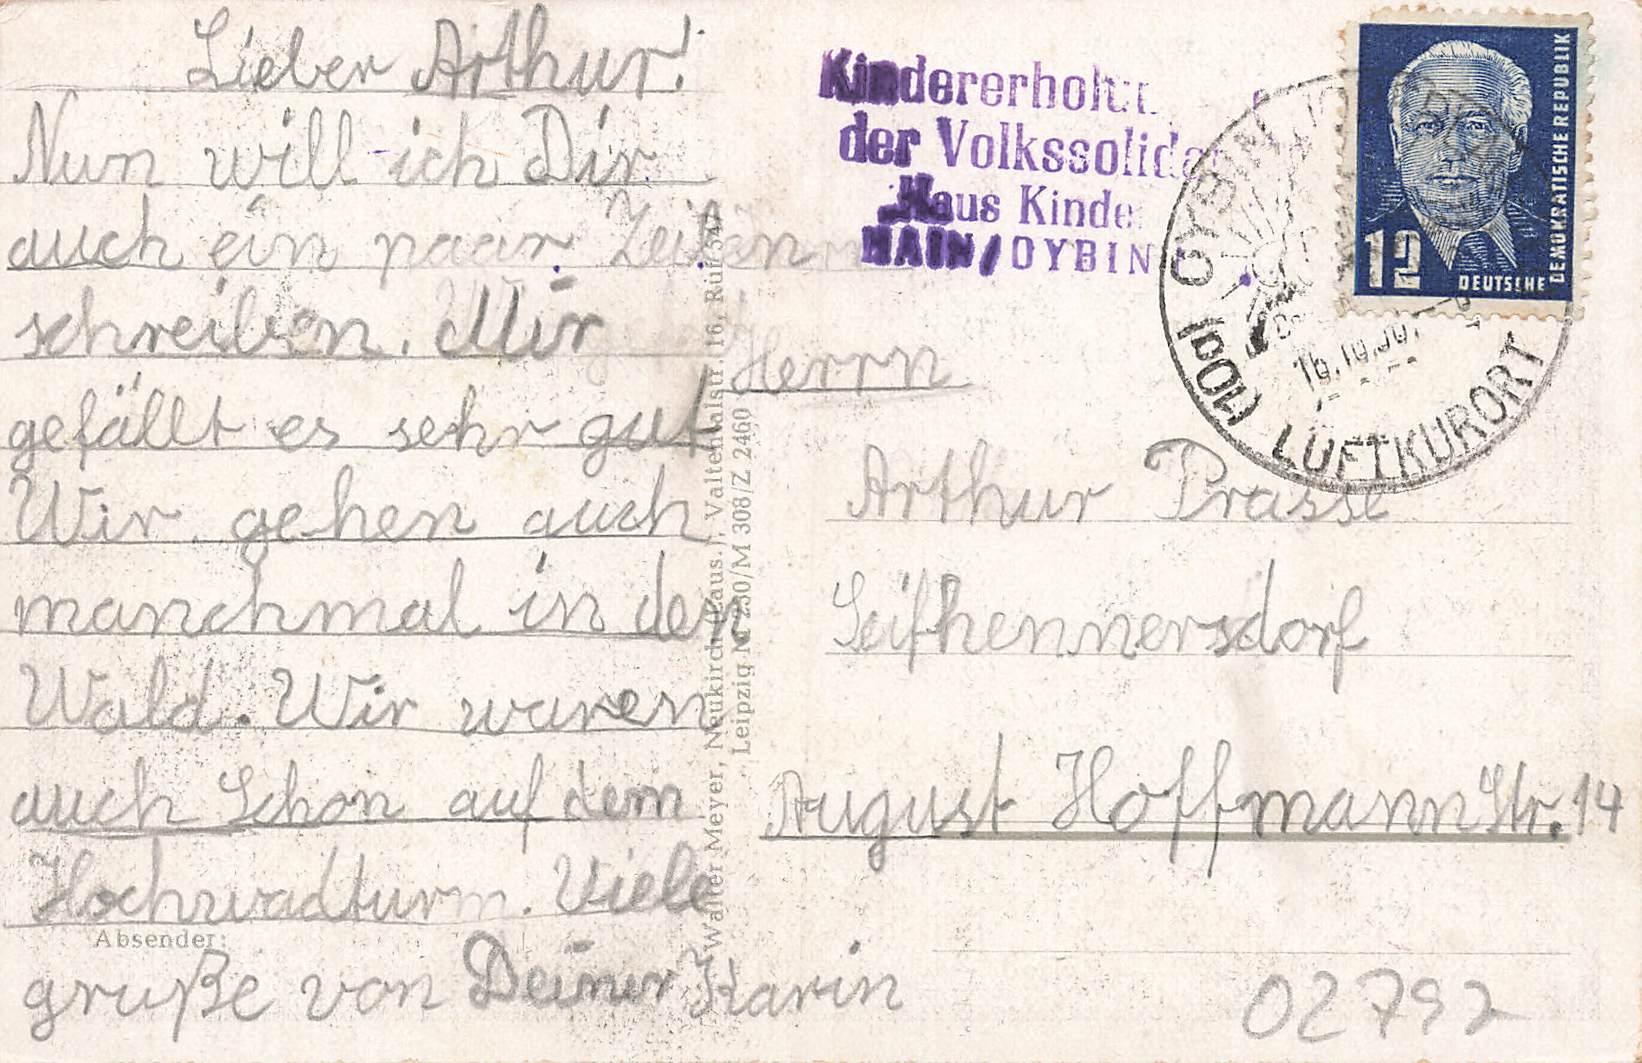 Lieber Arthur!
Nun will ich Dir
auch ein paar Zeilen
schreiben. Mir
gefällt es sehr gut
Wir gehen auch
manchmal in den
Wald. Wir waren
auch Schon auf dem
Hochwadturm. Viele
gruße von Deiner Karin
Absender:
Walter Meyer, Neukirch (Laus.), Valtentalstr. 16, Ruf 342
Leipzig M 230/M 308/Z 2460
Kindererholu
der Volkssolida
Haus Kinde
HAIN/OYBIN
12
DEUTSCHE
DEMOKRATISCHE REPUBLIK
OYBIN
LUFTKURORT
Herrn
Arthur Prasse
Seifhennersdorf
August Hoffmann Str. 14
02792